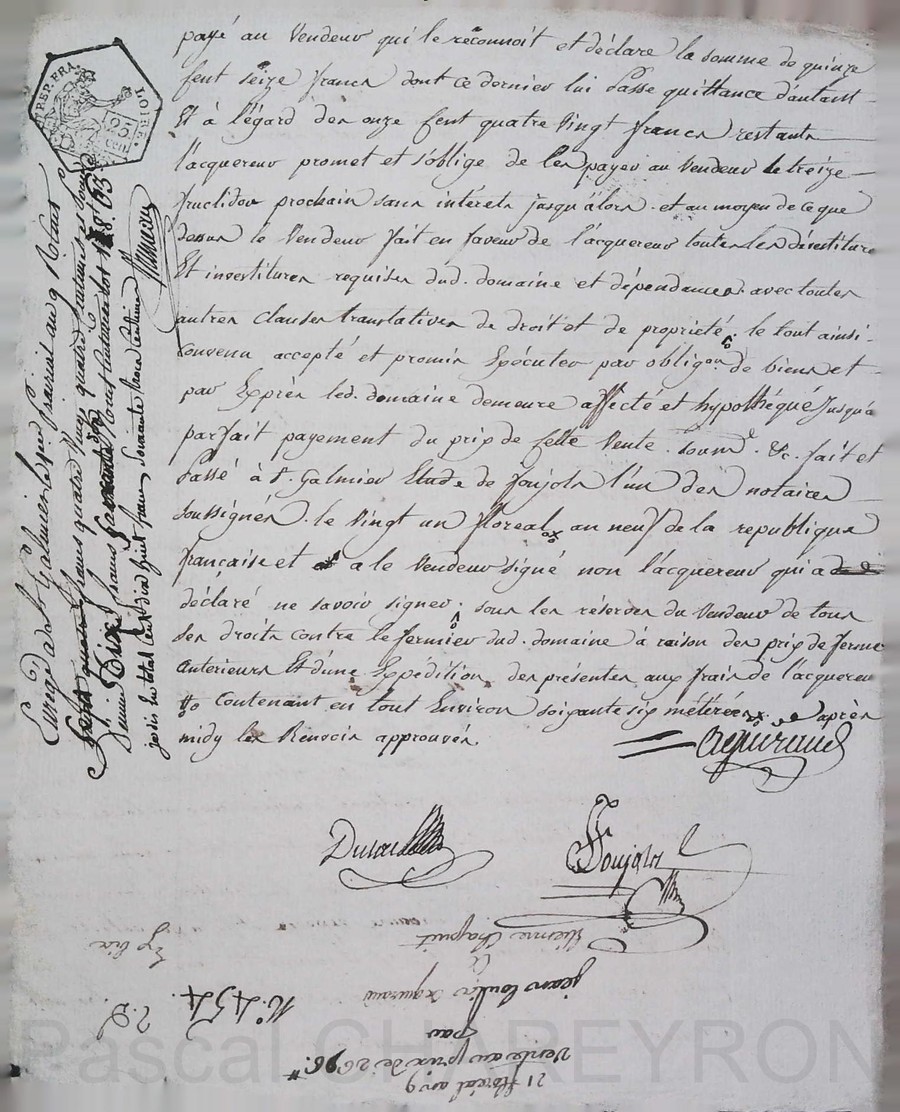 payé au Vendeur qui le reconnoit et déclare la somme de quinze
Cent Seize francs dont ce dernier lui Passe quittance d'autant
Et à l'égard des onze Cent quatre Vingt francs restants
l'acquereur promet et s'oblige de les payer au Vendeur le treize
fructidor prochain sans intérêts jusqu'alors. et au moyen de ce que
dessus le Vendeur fait en faveur de l'acquereur toutes les dévestitures
Et investitures requises dud. domaine et dépendances avec toutes
autres clauses translatives de droit et de propriété. le tout ainsi
Convenu accepté et promis Exécuter par obligon de biens et
par Exprès led. domaine demeure affecté et hypothéqué jusqu'a
parfait payement du prix de Cette Vente. soume. &c. fait et
Passé à St. Galmier Etude de Poujols l'un des notaires
Soussignés. le Vingt un floreal an neuf de la republique
française et a le Vendeur signé non l'acquereur qui a
déclaré ne savoir signer. sous les réserves du Vendeur de tous
ses droits contre le fermier dud. domaine à raison des prix de ferme
anterieurs Et d'une Expédition des présentes aux frais de l'acquereur
Contenant en tout Environ soixante six métérées après
midy les Renvois approuvés.
Poujols
REP. FRA.
LOIRE
Enregé à St Galmier le 1er prairial an 9 Reçu
francs quatre Vingt quatre
Dixe
pour centimes
fait in total cent dix huit francs soixante trois centimes
Etienne Chaput
à
jean Louis
par
Vente au prix de 2696
21 floreal an 9
N° 454
Pascal CHAREYRON